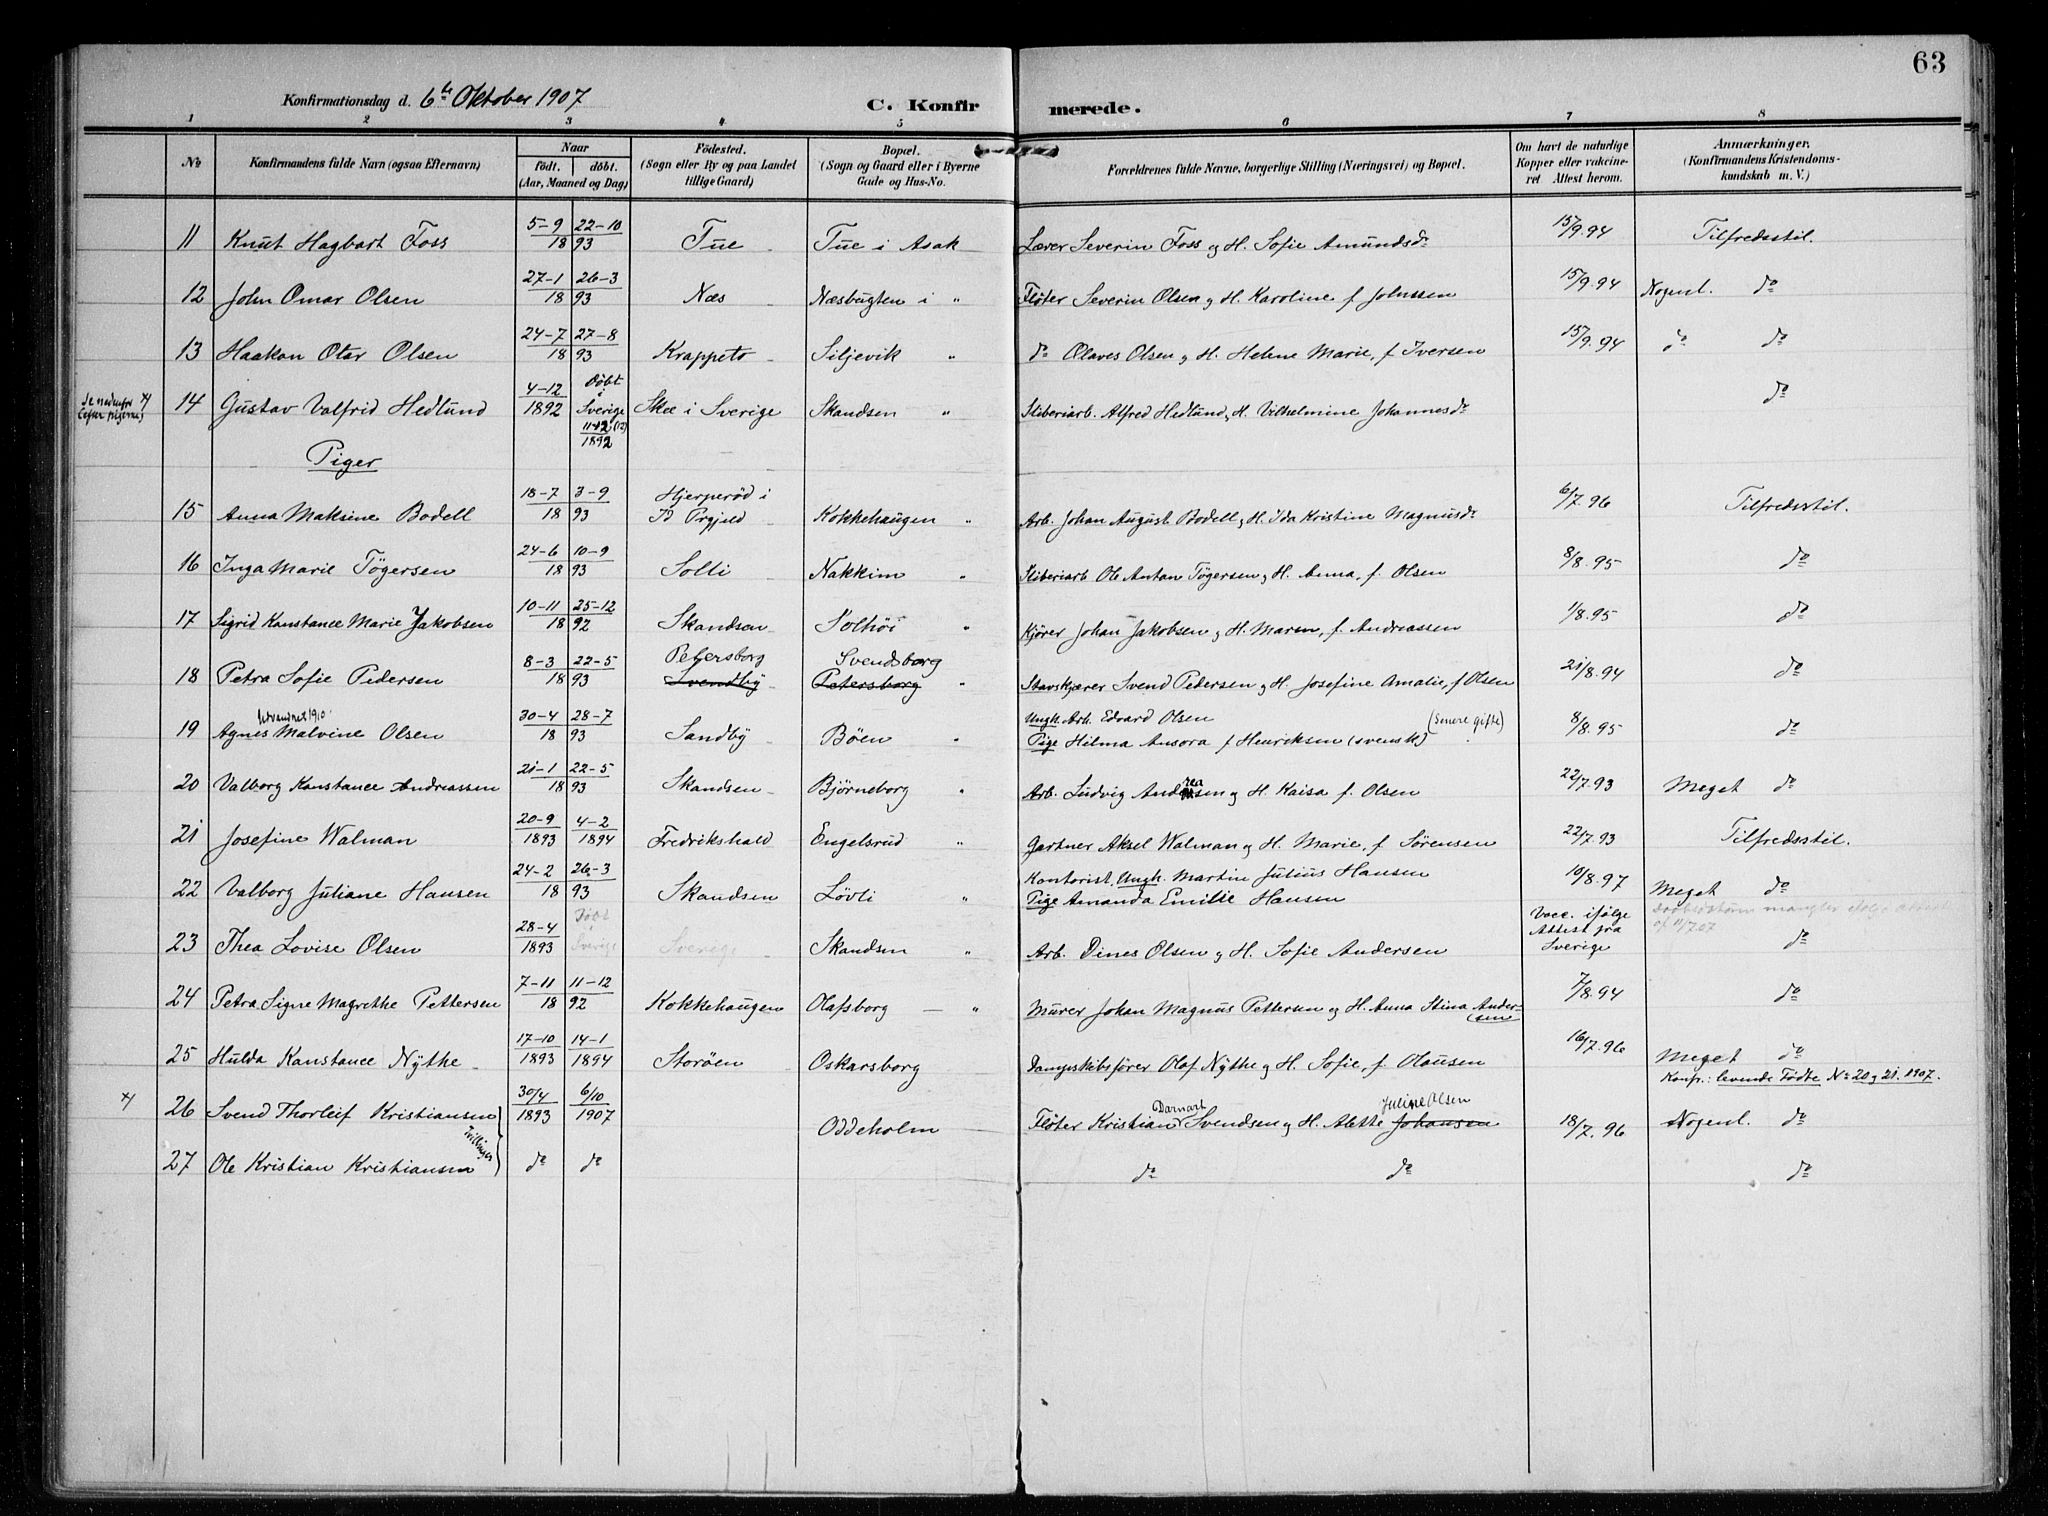 63
Konfirmationsdag d. 6te Oktober 1907 C. Konfir merede.
1 2 3 4 5 6 7 8
No Konfirmandens fulde Navn (ogsaa Efternavn) Naar født. døbt. (Aar, Maaned og Dag) Fødested. (Sogn eller By og paa Landet tillige Gaard) Bopæl. (Sogn og Gaard eller i Byerne Gade og Hus-No. Forældrenes fulde Navne, borgerlige Stilling (Næringsvei) og Bopæl. Om havt de naturlige Kopper eller vakcineret Attest herom. Anmærkninger. (Konfirmandens Kristendomskundskab m. V.)
11 Knut Hagbart Foss 5-9 22-10 1893 Tue Tue i Asak Lærer Severin Foss og H. Sofie Amundsdr 15/9.94 Tilfredsstil.
12 John Omar Olsen 27-1 26-3 1893 Næs Næsbugten i " Fløter Severin Olsen og H. Karoline f. Johnssen 15/9.94 Nogenl. do
13 Haakon Otar Olsen 24-7 27-8 1893 Krappeto Siljevik " do Olaves Olsen og H. Helene Marie, f. Iversen 15/9.94 do do
Se nedenfor (efter pigerne) x) 14 Gustav Valfrid Hedlund 4-12 1892 Døbt i Sverige 11-12 (12) 1892 Skee i Sverige Skandsen " Sliberiarb. Alfred Hedlund, H. Vilhelmine Johannesdr do
Piger
15 Anna Maksine Bodell 18-7 3-9 1893 Hjerperød i Id Prgjeld Kokkehaugen " Arb. Johan August Bodell og H. Ida Kristine Magnusdr 6/7.96 Tilfredsstil.
16 Inga Marie Tøgersen 24-6 10-9 1893 Solli Nakkim " Sliberiarb Ole Anton Tøgersen og H. Anna, f. Olsen 8/8.95 do
17 Sigrid Konstance Marie Jakobsen 10-11 25-12 1892 Skandsen Solhøi " Kjører Johan Jakobsen og H. Maren, f. Andreassen 1/8.95 do
18 Petra Sofie Pedersen 8-3 22-5 1893 Petersborg Svendby Svendsborg Petersborg " Stavskjærer Svend Pedersen og H. Josefine Amalie, f Olsen 21/8.94 do
19 Agnes Malvine Olsen Udvandret 1910. 30-4 28-7 1893 Sandby Bøen " Ungk. Arb. Edvard Olsen
Pige Hilma Ansora f Henriksen (svensk) (Senere gifte) 8/8.95 do
20 Valborg Konstance Andreassen 21-1 22-5 1893 Skandsen Bjørneborg " Arb. Ludvig Andreasen og H. Kaisa f. Olsen 22/7.93 Meget do
21 Josefine Walman 20-9 1893 4-2 1894 Fredrikshald Engelsrud " Gartner Aksel Walman og H. Marie, f. Sørensen 22/7.93 Tilfredsstil.
22 Valborg Juliane Hansen 24-2 26-3 1893 Skandsen Løvli " Kontorist, Ungk. Martin Julius Hansen
Pige Amanda Emilie Hansen 10/8.97 Meget do
23 Thea Lovise Olsen 28-4 1893 Døbt i Sverige Sverige Skandsen " Arb. Dines Olsen og H. Sofie Andersen Vacc. ifølge Attest fra Sverige do
24 Petra Signe Magrethe Pettersen 7-11 11-12 1892 Kokkehaugen Olafsborg " Murer Johan Magnus Pettersen og H. Anna Stina Andersen 7/8.94 do
25 Hulda Konstance Nythe 17-10 1893 14-1 1894 Storøen Oskarsborg Dampskibsfører Olaf Nythe og H. Sofie, f. Olausen 16/7.96 Meget do
Konfr.: levende Fødte No 20 og 21. 1907.
x) 26 Svend Thorleif Kristiansen 30/4 1893 6/10 1907 Oddeholm Fløter Kristian Darnart Svendsen og H. Alette Johansen Juline Olsen 18/7.96 Nogenl. do
Tvillinger
27 Ole Kristian Kristiansen do do do do do